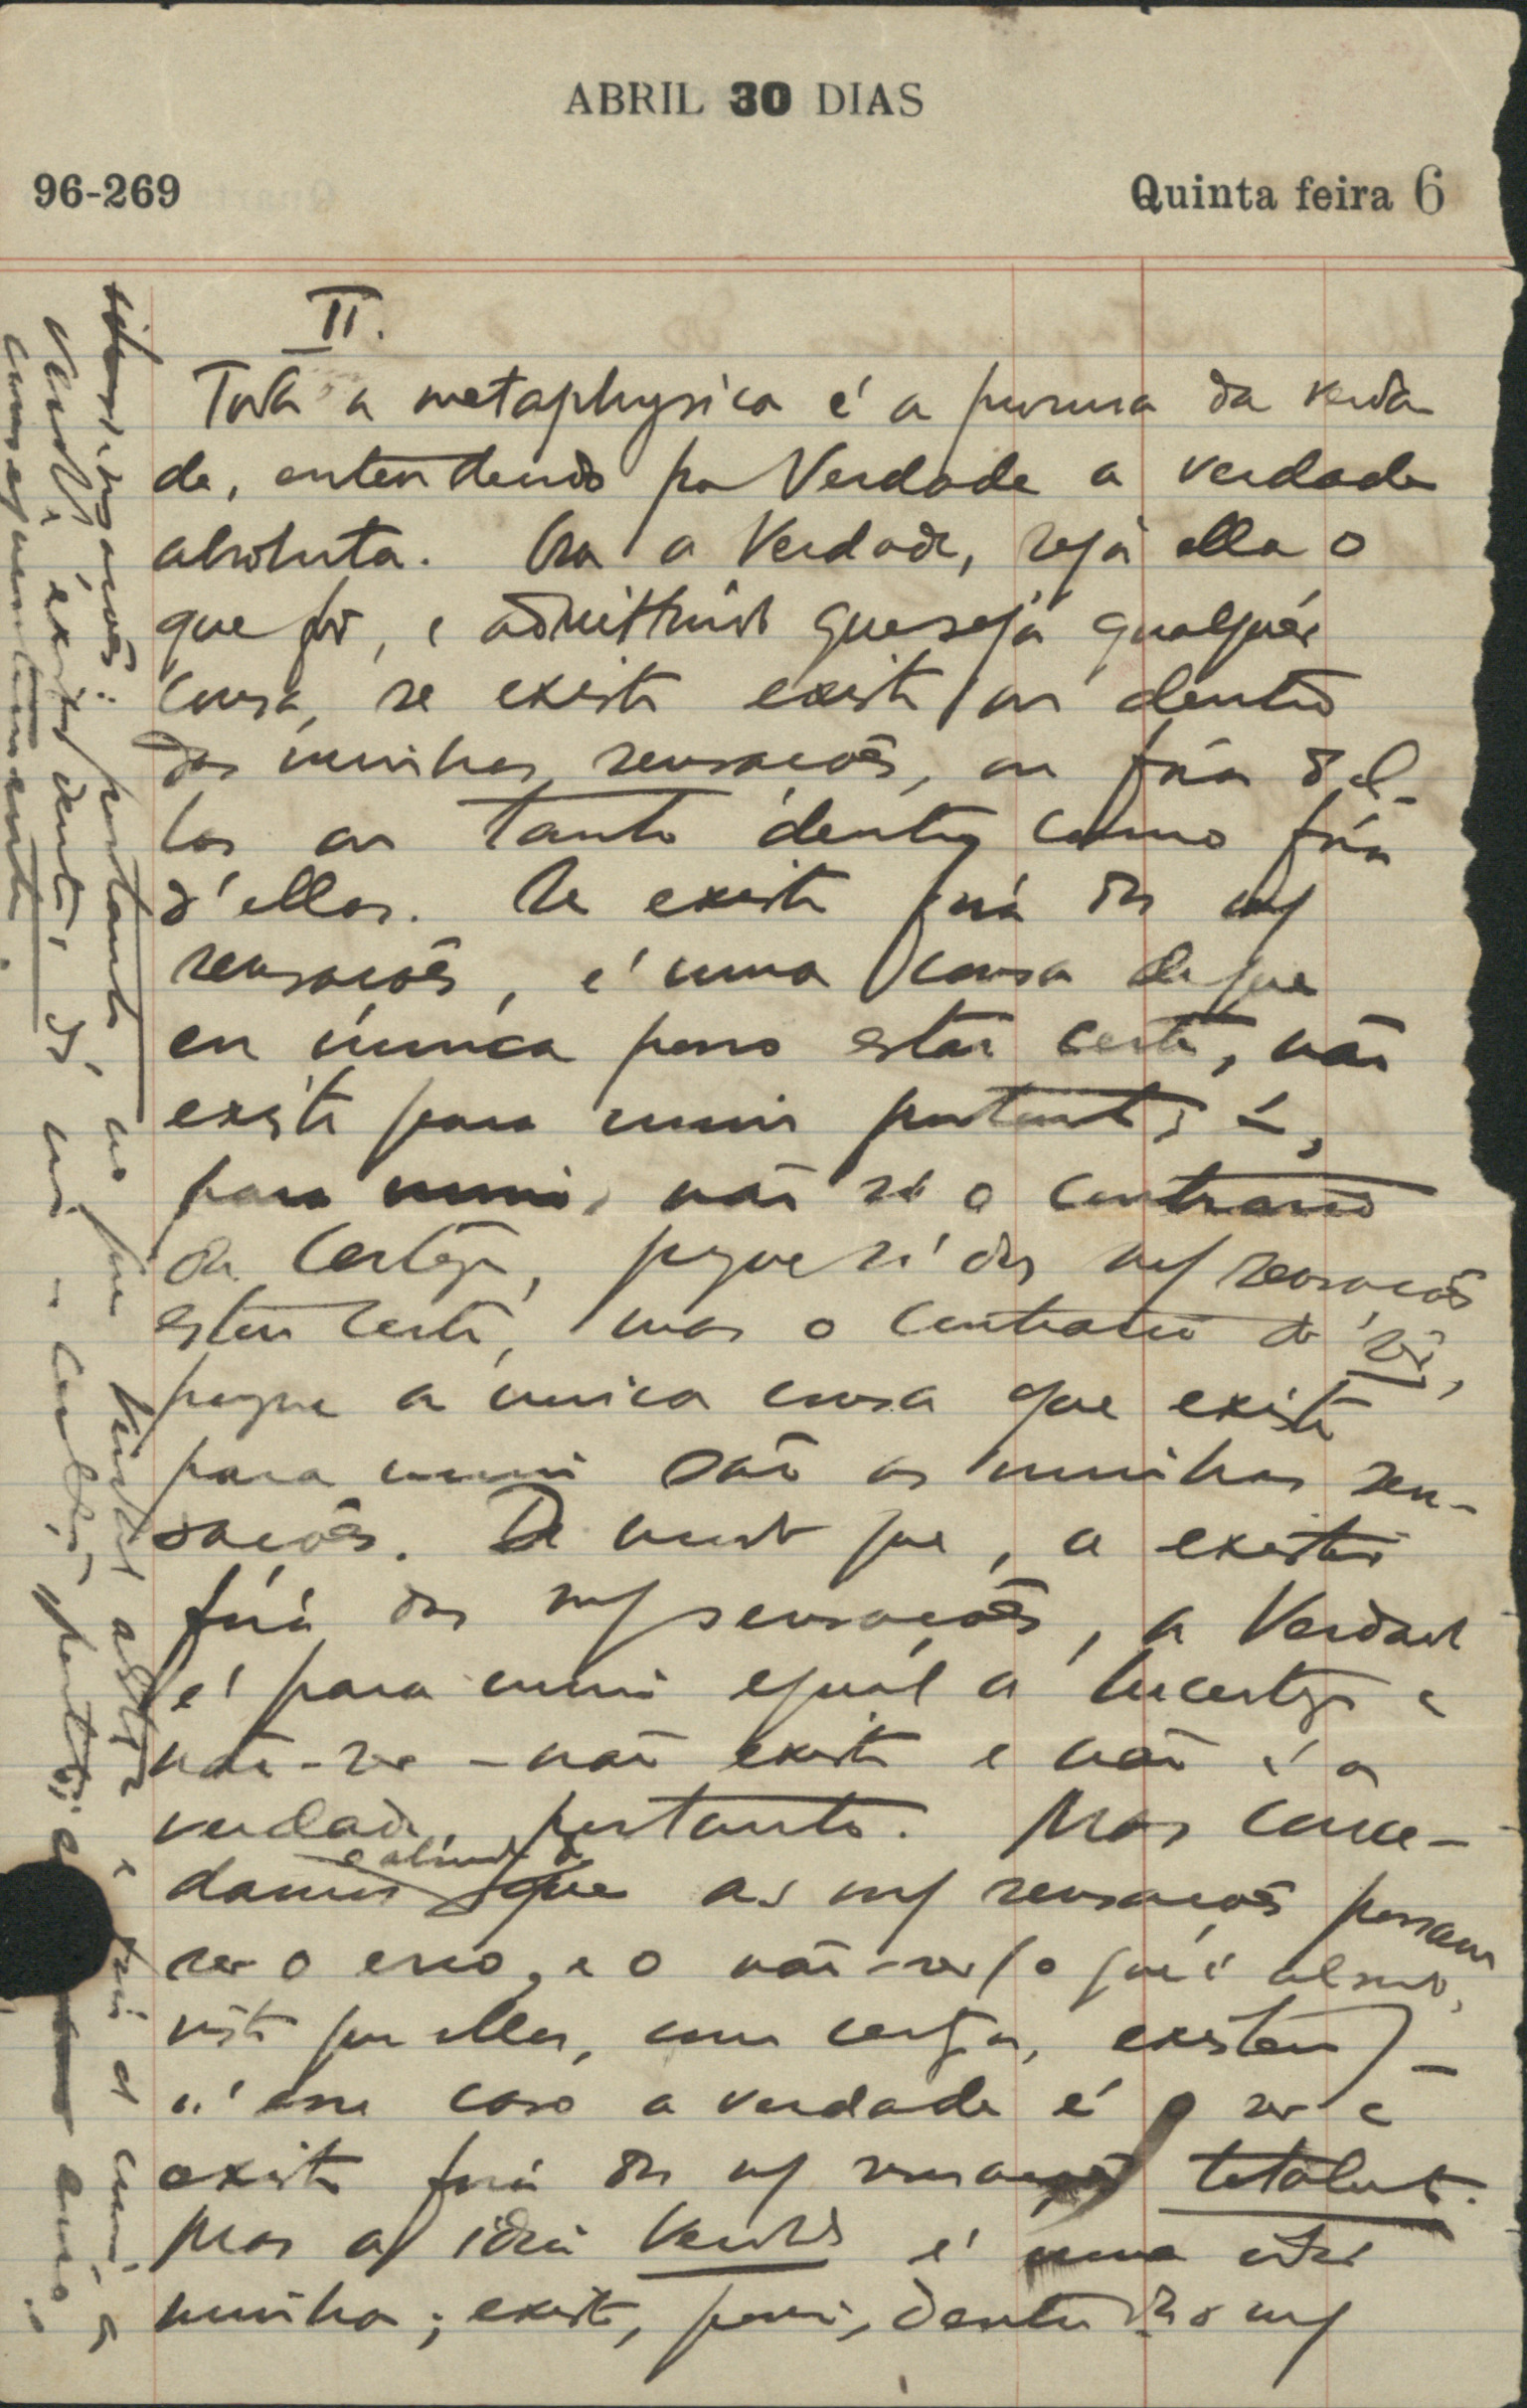 ABRIL 30 DIAS
96-269
Quinta feira 6
II.
Toda a metaphysica é a procura da verda-
de, entendendo por Verdade a verdade
absoluta. Ora a Verdade, seja ella o
que fôr, e admittindo que seja qualquér
cousa, se existe existe ou dentro
das minhas sensações, ou fóra d'el-
las ou tanto dentro como fóra
d'ellas. Se existe fóra das m/
sensações, é uma cousa de que
eu nunca posso estar certo, não
existe para mim portanto, é,
para mim, não só o contrario
da certeza, pqque só das m/ sensações
estou certo, mas o contrario de sêr,
porque a unica cousa que existe
para mim são as minhas sen-
sações. De modo que, a existir
fóra das m/ sensações, a Verdade
é para mim egual a Incerteza e
não-ser - não existe e não é a
verdade, portanto. Mas conce-
damos o absurdo de que as m/ sensações possam
ser o erro, e o não-ser (o que é absurdo,
visto que ellas, com certeza, existem) -
n'esse caso a verdade é o ser e
existe fóra das m/ sensações totalmte.
Mas a idéa Verdade é uma idéa
minha; existe, por isso, dentro das m/
sensações; portanto, no que Verdade abstracta e fóra de mim, a
Verdade existe dentro de mim - contradicção, portanto; e erro,
consequentemente.